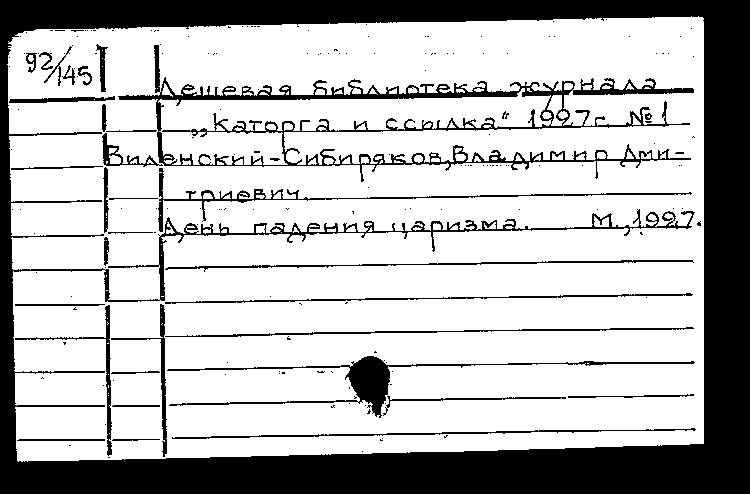 92/145
Дешевая библиотека журнала
„Каторга и ссылка" 1927г. №1
Виленский-Сибиряков, Владимир Дми-
триевич.
День падения царизма. М., 1927.